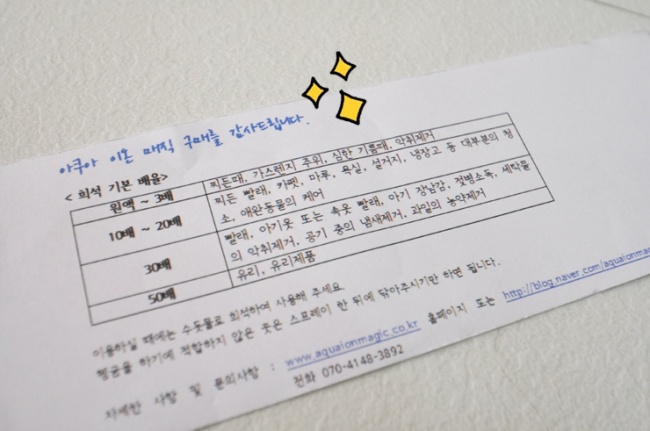 아쿠아 이온 매직 구매를 감사드립니다.
< 희석 기본 배율>
원액 ~ 3배 찌든때, 가스렌지 주위, 심한 기름때, 악취제거
10배 ~ 20배 찌든 빨래, 카펫, 마루, 욕실, 설거지, 냉장고 등 대부분의 청
소, 애완동물의 케어
30배 빨래, 아기옷 또는 속옷 빨래, 아기 장난감, 젖병소독, 세탁물
의 악취제거, 공기 중의 냄새제거, 과일의 농약제거
50배 유리, 유리제품
이용하실 때에는 수돗물로 희석하여 사용해 주세요.
헹굼을 하기에 적합하지 않은 곳은 스프레이 한 뒤에 닦아주시기만 하면 됩니다.
자세한 사항 및 문의사항 : www.aquaionmagic.co.kr 홈페이지 또는 http://blog.naver.com/aquaionmagic
전화 070-4148-3892